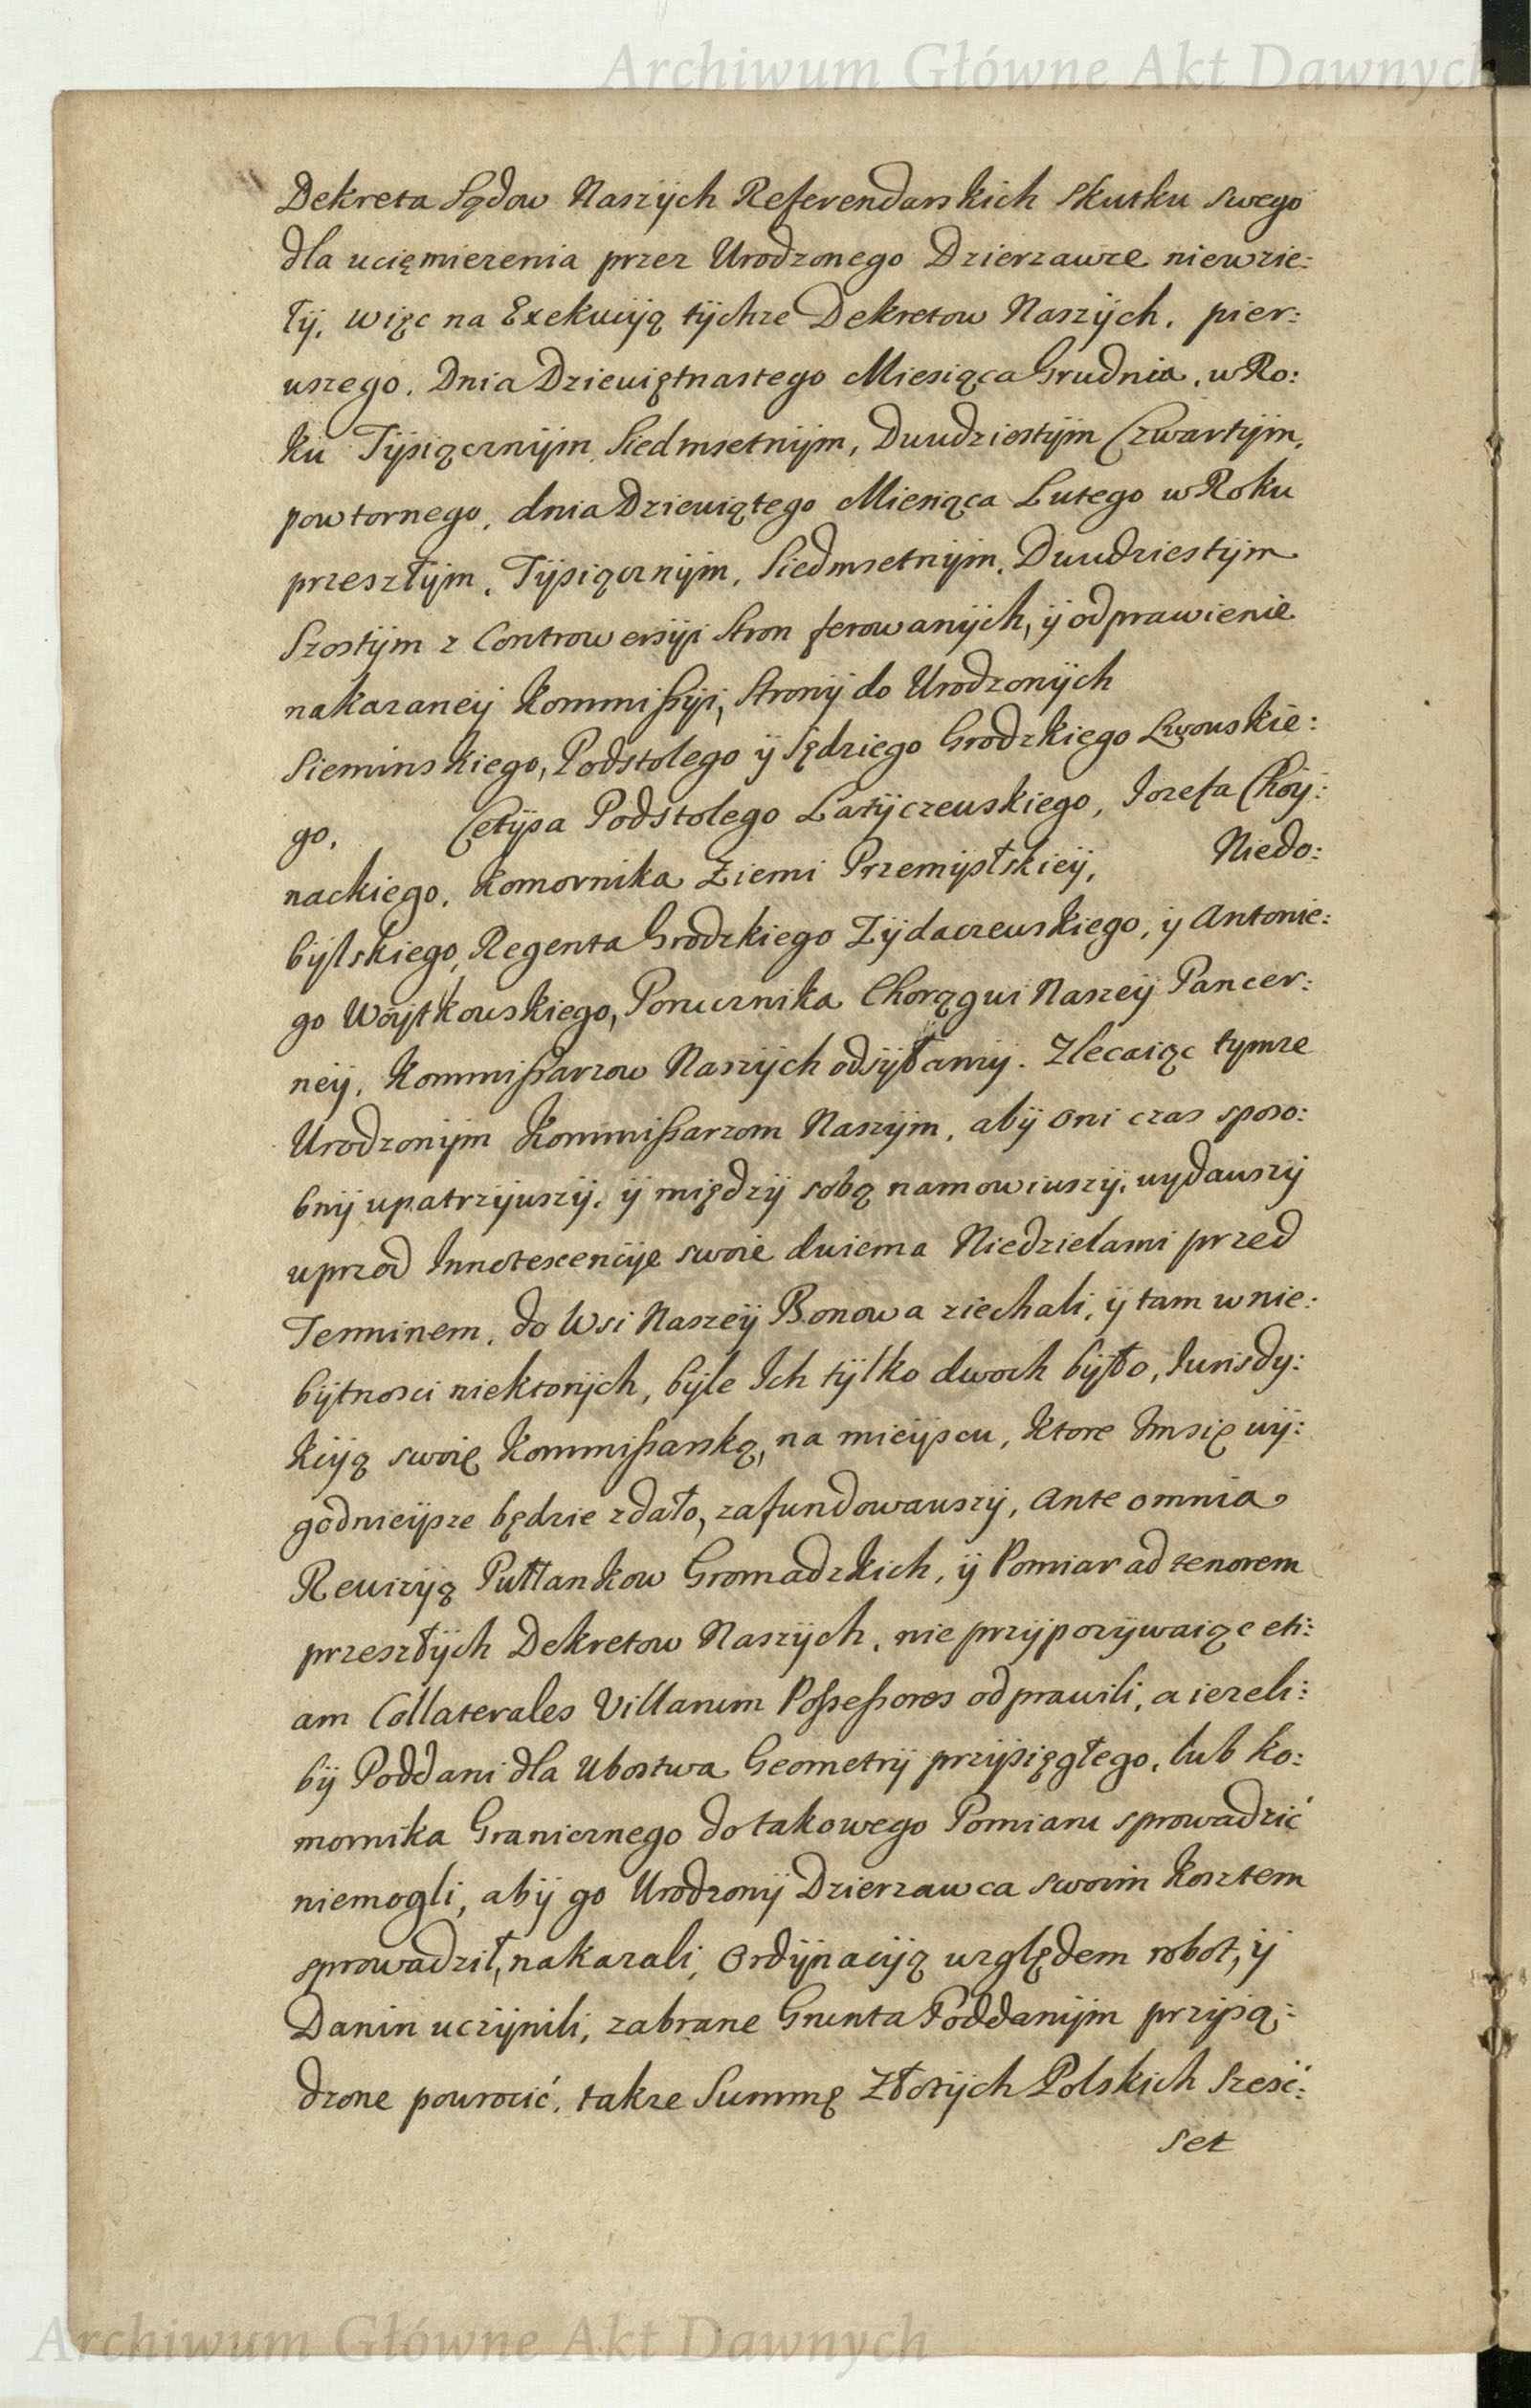 Archiwum Główne Akt Dawnych
Dekreta Sądow Naszÿch Referendarskich skutku swego
dla ucięmiezenia przez Urodzonego Dzierzawce niewzie:
łÿ, więc na Exekucÿą tÿchze Dekretow Naszÿch, pier:
wszego, Dnia Dziewiętnastego Miesiąca Grudnia, w Ro:
ku Tÿsiącznÿm Siedmsetnÿm, Dwudziestÿm Czwartÿm,
powtornego, dnia Dziewiątego Miesiąca Lutego w Roku
przeszłÿm, Tÿsiącznÿm, Siedmsetnÿm, Dwudziestÿm
Szostÿm z Controwersÿi Stron ferowanÿch, ÿ odprawienie
nakazaneÿ Kommißÿi, Stronÿ do Urodzonÿch
Sieminskiego, Podstolego ÿ Sędziego Grodzkiego Lwowskie:
go, Cetÿsa Podstolego Latÿczewskiego, Jozefa Choÿ:
nackiego, Komornika Ziemi Przemÿslskieÿ, Niedo:
bÿlskiego, Regenta Grodzkiego Zÿdaczewskiego, ÿ Antonie:
go Woÿtkowskiego, Porucznika Chorągwi Naszeÿ Pancer:
neÿ, Kommißarzow Naszÿch odsÿłamÿ. Zlecaiąc tymze
Urodzonÿm Kommißarzom Naszÿm, abÿ oni czas sposo:
bnÿ upatrzÿwszÿ, ÿ międzÿ sobą namowiwszÿ, wydawszÿ
wprzod Innotescencÿe swoie dwiema Niedzielami przed
Terminem, do Wsi Naszeÿ Bonowa ziechali, ÿ tam w nie:
bÿtnosci niektorÿch, bÿle Ich tÿlko dwoch bÿło, Jurisdy:
kcÿą swoię Kommißarską, na mieÿscu, ktore Im się wÿ:
godnieÿsze będzie zdało, zafundowawszÿ, ante omnia
Rewizÿą Pułłankow Gromadzkich, ÿ Pomiar ad tenorem
przeszłÿch Dekretow Naszÿch, nie przÿpozÿwaiąc eti:
am Collaterales Villarum Poßeßores odprawili, a iezeli:
bÿ Poddani dla Ubostwa Geometrÿ przÿsięgłego, lub Ko:
mornika Granicznego do takowego Pomiaru sprowadzić
niemogli, abÿ go Urodzonÿ Dzierzawca swoim Kosztem
sprowadził, nakazali, Ordÿnacÿą względem robot, ÿ
Danin uczÿnili, zabrane Grunta Poddanÿm przÿsą:
dzone powrocić, takze Summę Złotÿch Polskich Szesć:
set
Archiwum Główne Akt Dawnych